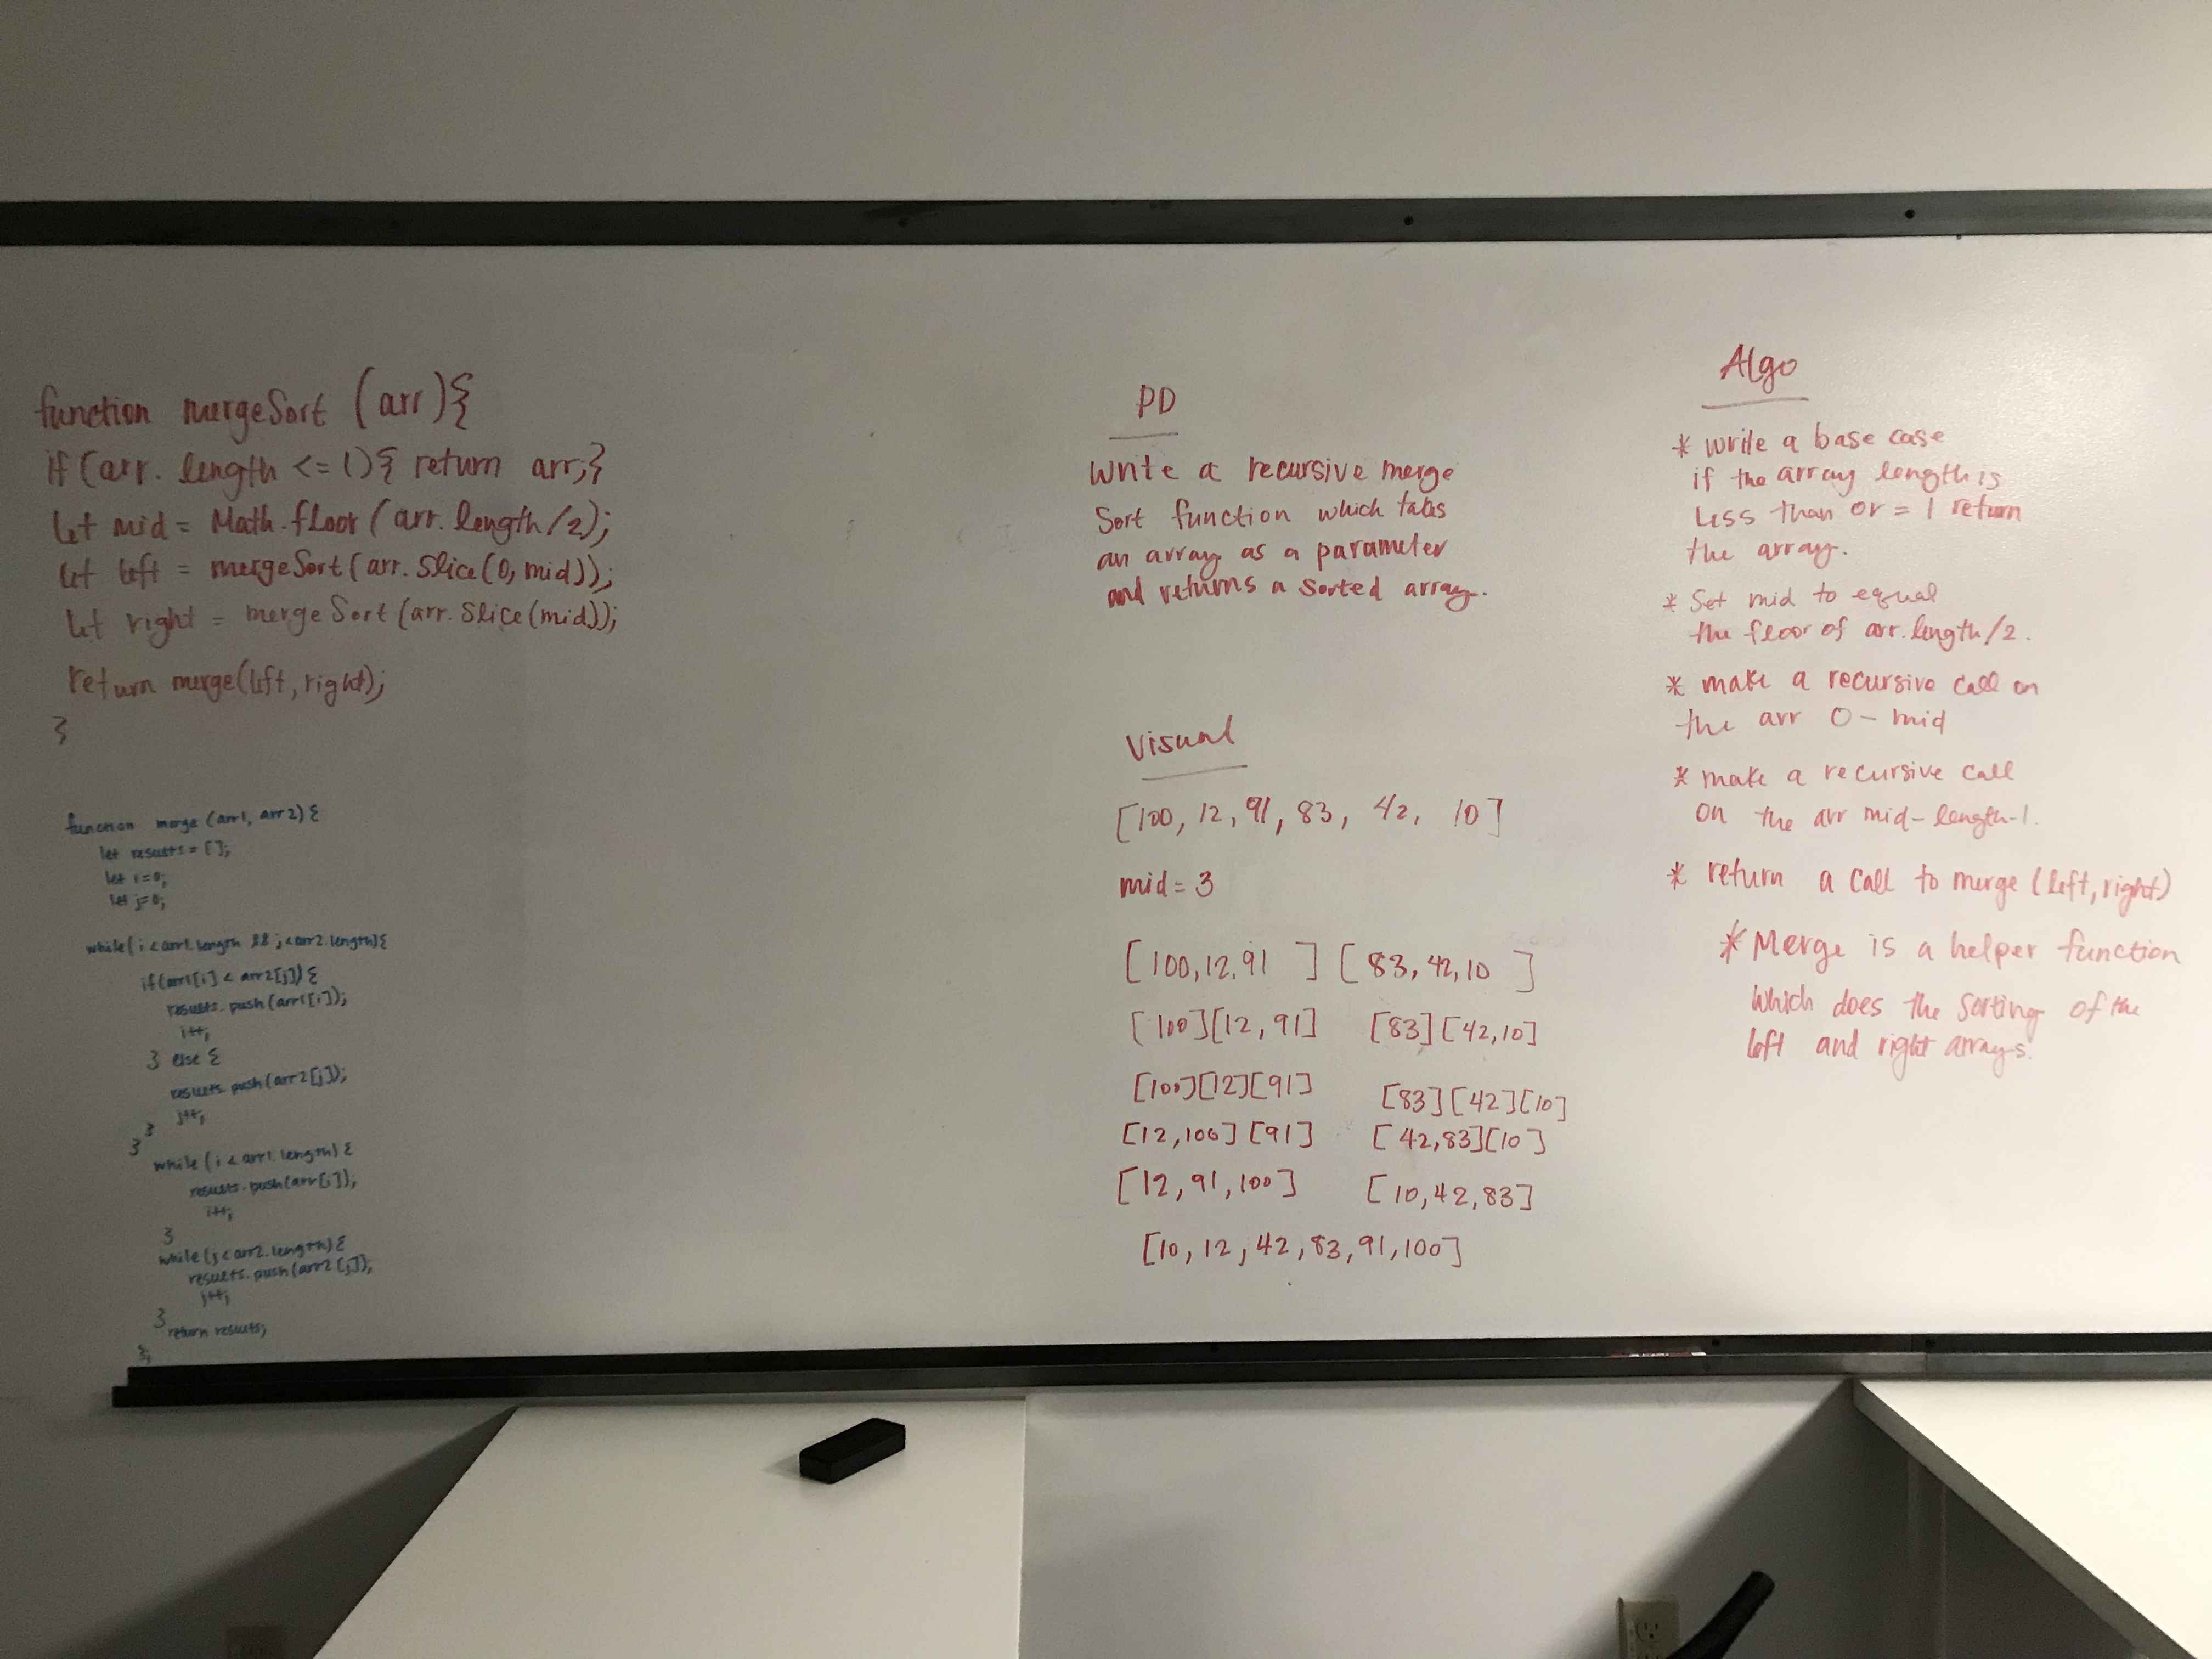 function mergeSort (arr){
if (arr. length <= 1) { return arr;}
let mid = Math.floor (arr. length/2);
let left = mergeSort(arr. Slice(0, mid));
let right = mergeSort (arr. Slice(mid));
return merge(left, right);
}
function merge (arr1, arr2) {
let results = [];
let i=0;
let j=0;
while( i < arr1.length && j < arr2.length){
if(arr1[i] < arr2[j]) {
results. push (arr1[i]);
i++;
} else {
results. push (arr2[j]);
j++;
}
}
while ( i < arr1. length) {
results. push (arr[i]);
i++;
}
while (j < arr2. length) {
results. push (arr2 [j]);
j++;
}
return results;
};
PD
Write a recursive merge
Sort function which takes
an array as a parameter
and returns a sorted array.
Visual
[100, 12, 91, 83, 42, 10]
mid = 3
[100,12,91 ] [ 83, 42,10 ]
[100][12, 91] [83] [42,10]
[100][12][91] [83] [42] [10]
[12,100] [91] [42,83][10]
[12, 91, 100] [10,42,83]
[10, 12, 42, 83, 91, 100]
Algo
* write a base case
if the array length is
less than or = 1 return
the array.
* Set mid to equal
the floor of arr. length/2.
* make a recursive call on
the arr 0 - mid
* make a recursive call
on the arr mid-length-1.
* return a call to merge (left, right)
* Merge is a helper function
which does the sorting of the
left and right arrays.